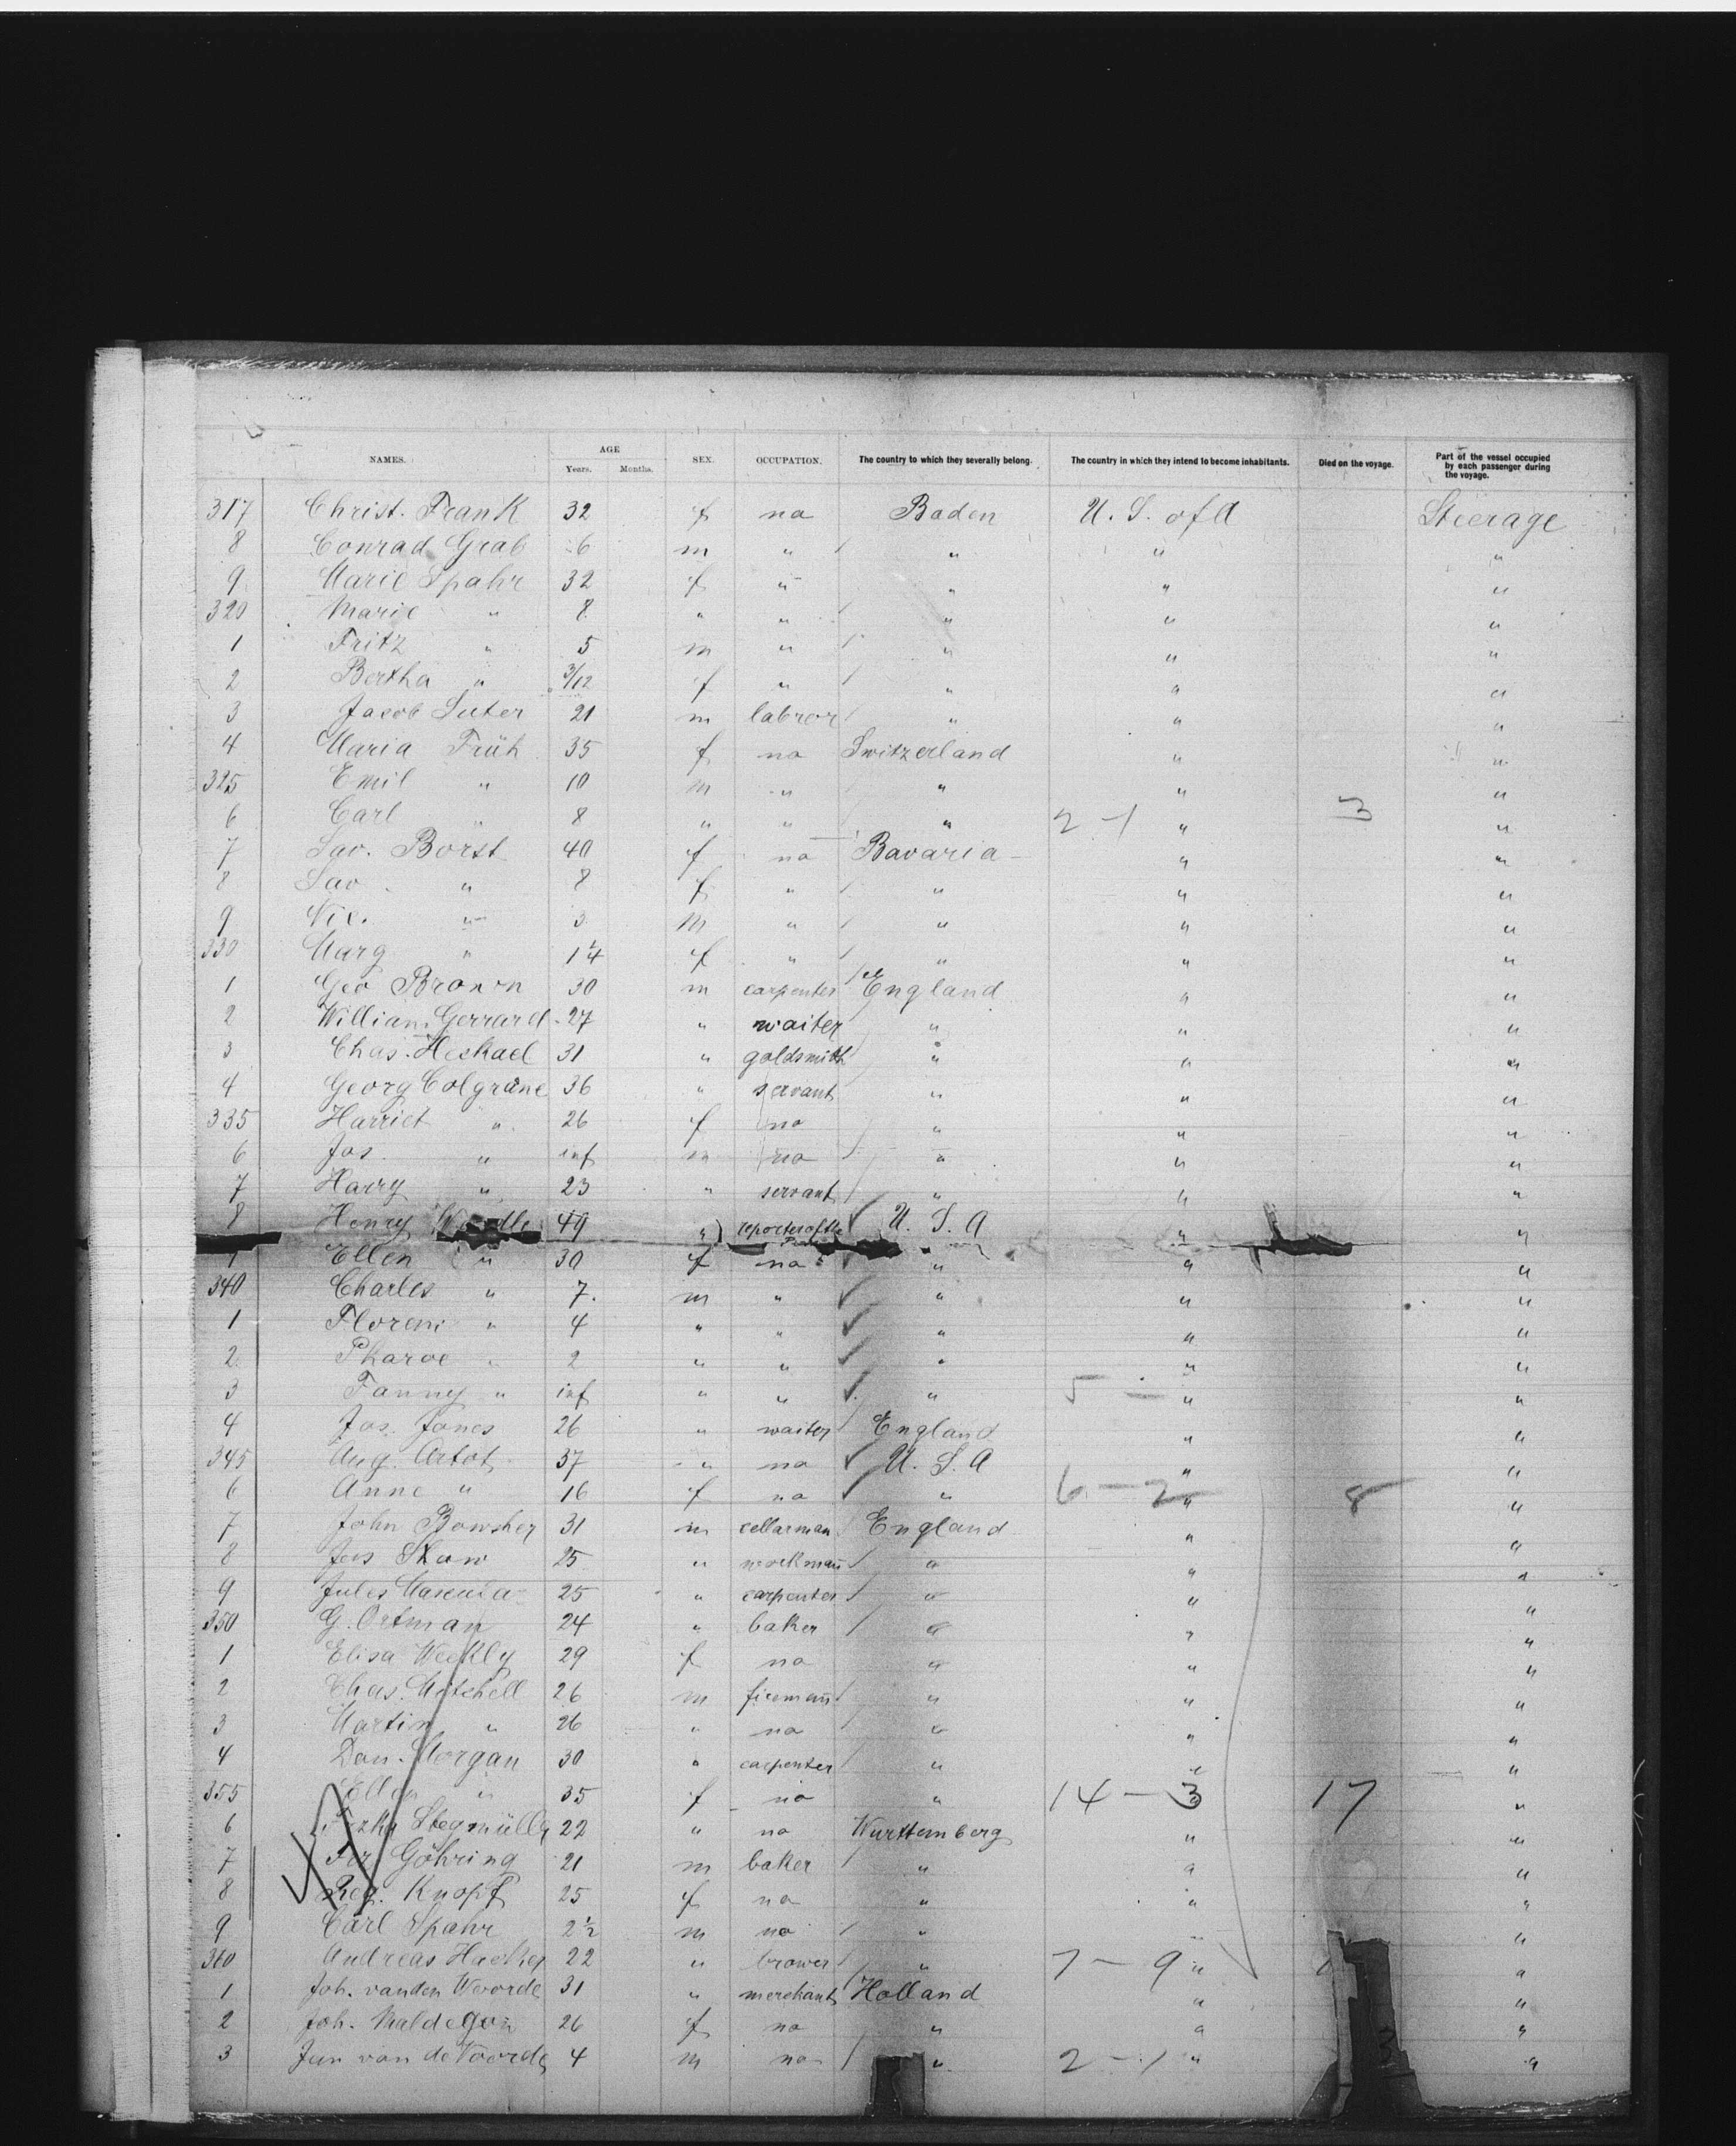 NAMES. AGE SEX. OCCUPATION. The country to which they severally belong. The country in which they intend to become inhabitants. Died on the voyage. Part of the vessel occupied by each passenger during the voyage.
Years. Months.
317 Christ. Frank 32 f na Baden U. S. of A Steerage
8 Conrad Grab 6 m " " " "
9 Marie Spahr 32 f " " " "
320 Marie " 8 " " " " "
1 Fritz " 5 m " " " "
2 Bertha " 3/12 f " " " "
3 Jacob Suter 21 m labror " " "
4 Maria Früh 35 f na Switzerland " "
325 Emil " 10 m " " " "
6 Carl " 8 " " " 2-1 " 3 "
7 Sav. Borst 40 f na Bavaria " "
8 Sav. " 8 f " " " "
9 Nic. " 3 m " " " "
330 Marg " 1¼ f " " " "
1 Geo Brown 30 m carpenter England " "
2 William Gerrard 27 " waiter " " "
3 Chas. Heckael 31 " goldsmith " " "
4 Georg Colgrane 36 " servant " " "
335 Harriet " 26 f na " " "
6 Jos. " inf m na " " "
7 Harry " 23 " servant " " "
8 Henry 49 " reporter of the U. S. A " "
Ellen " 30 f na " " "
340 Charles " 7. m " " " "
1 Floreni " 4 " " " " "
2 Pharoe " 2 " " " " "
3 Fanny " inf " " " 5 - " "
4 Jos. Jones 26 " waiter England " "
345 Aug. Artot 37 " na U. S. A " "
6 Anne " 16 f na " 6-2 " 8 "
7 John Bowsher 31 m cellarman England " "
8 Jas Shaw 25 " workman " " "
9 Jules 25 " carpenter " " "
350 G. Ortman 24 " baker " " "
1 Elisa Weekly 29 f na " " "
2 Chas. Mitchell 26 m fireman " " "
3 Martin " 26 " na " " "
4 Dan. Morgan 30 " carpenter " " "
355 Ellen " 35 f na " 14-3 " 17 "
6 Stegmüller 22 " na Wurttemberg " "
7 Fr. Göhring 21 m baker " " "
8 Reg. Knopf 25 f na " " "
9 Carl Spahr 2½ m na " " "
360 Andreas Hacker 22 " brower " 7-9 " "
1 Joh. vanden Woorde 31 " merchant Holland " "
2 Joh. Maldegon 26 f na " " "
3 Jun van de Voorde 4 m na " 2-1 " 3 "